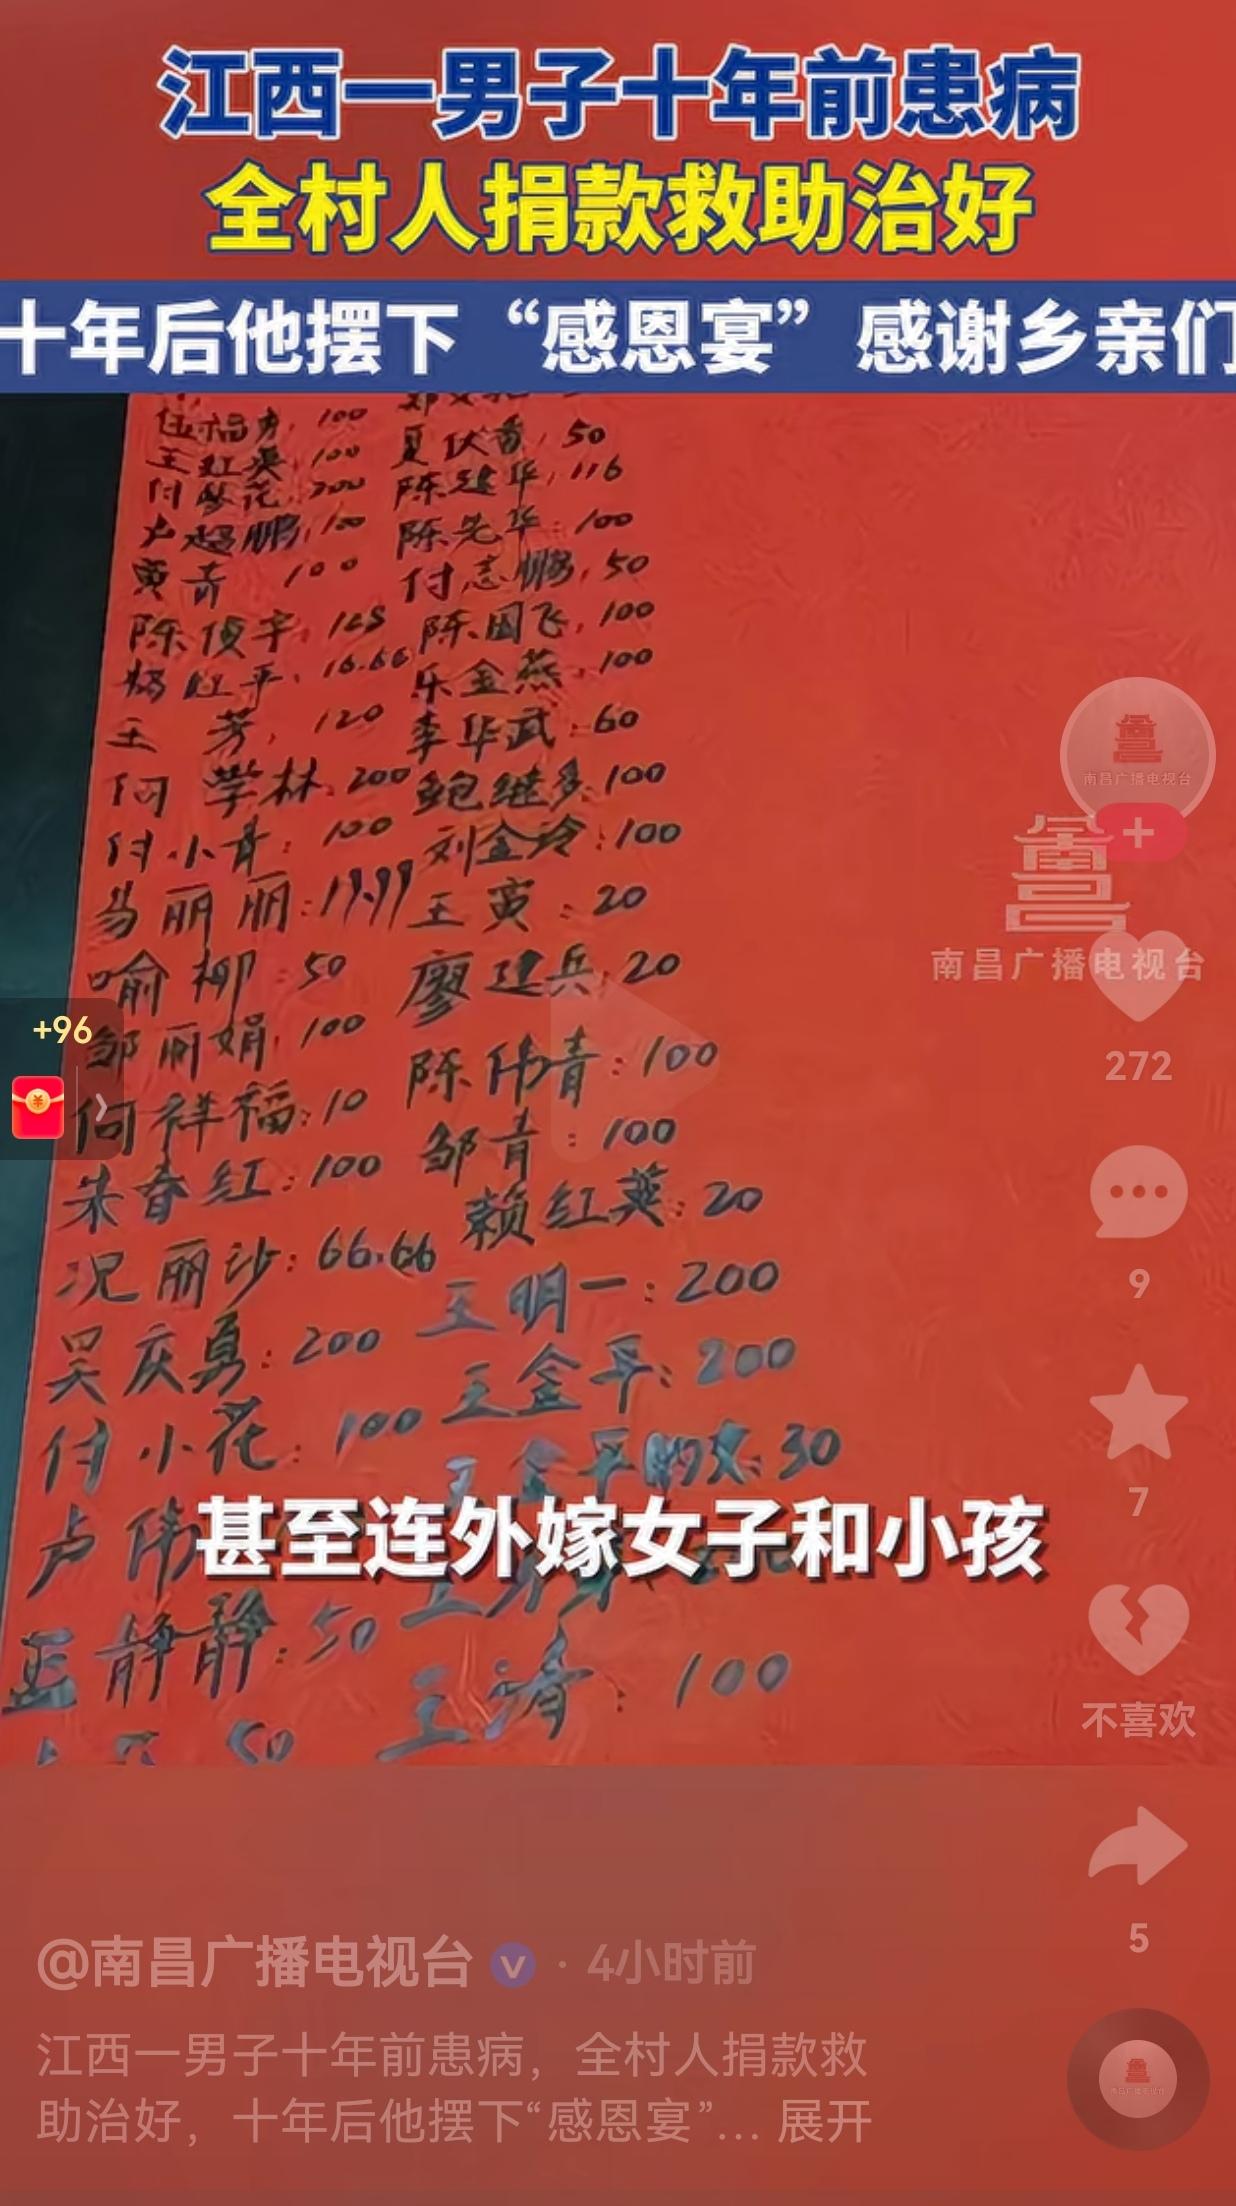 江西一男子十年前患病
全村人捐款救助治好
十年后他摆下“感恩宴”感谢乡亲们
伍福秀, 100
王红英, 100 夏伏香, 50
付琴花, 200 陈建华, 116
卢超鹏, 100 陈先华: 100
黄青 100 付志鹏, 50
陈俊宇, 125 陈国飞, 100
杨红平, 16.66 乐金燕, 100
王芳, 120 李华武: 60
何学林, 200 鲍继多: 100
付小青: 100 刘金玲: 100
易丽丽: 19.99 王寅: 20
喻柳: 50 廖建兵: 20
邹丽娟, 100 陈伟青: 100
何祥福: 10 邹青: 100
朱春红: 100 赖红英: 20
况丽沙: 66.66 王明一: 200
吴庆勇: 200 王金平: 200
付小花: 100 王金平的女: 30
卢伟
甚至连外嫁女子和小孩
孟静静: 50
王涛: 100
50
南昌广播电视台
南昌广播电视台
+96
272
9
7
不喜欢
5
@南昌广播电视台 · 4小时前
江西一男子十年前患病，全村人捐款救
助治好，十年后他摆下“感恩宴”... 展开